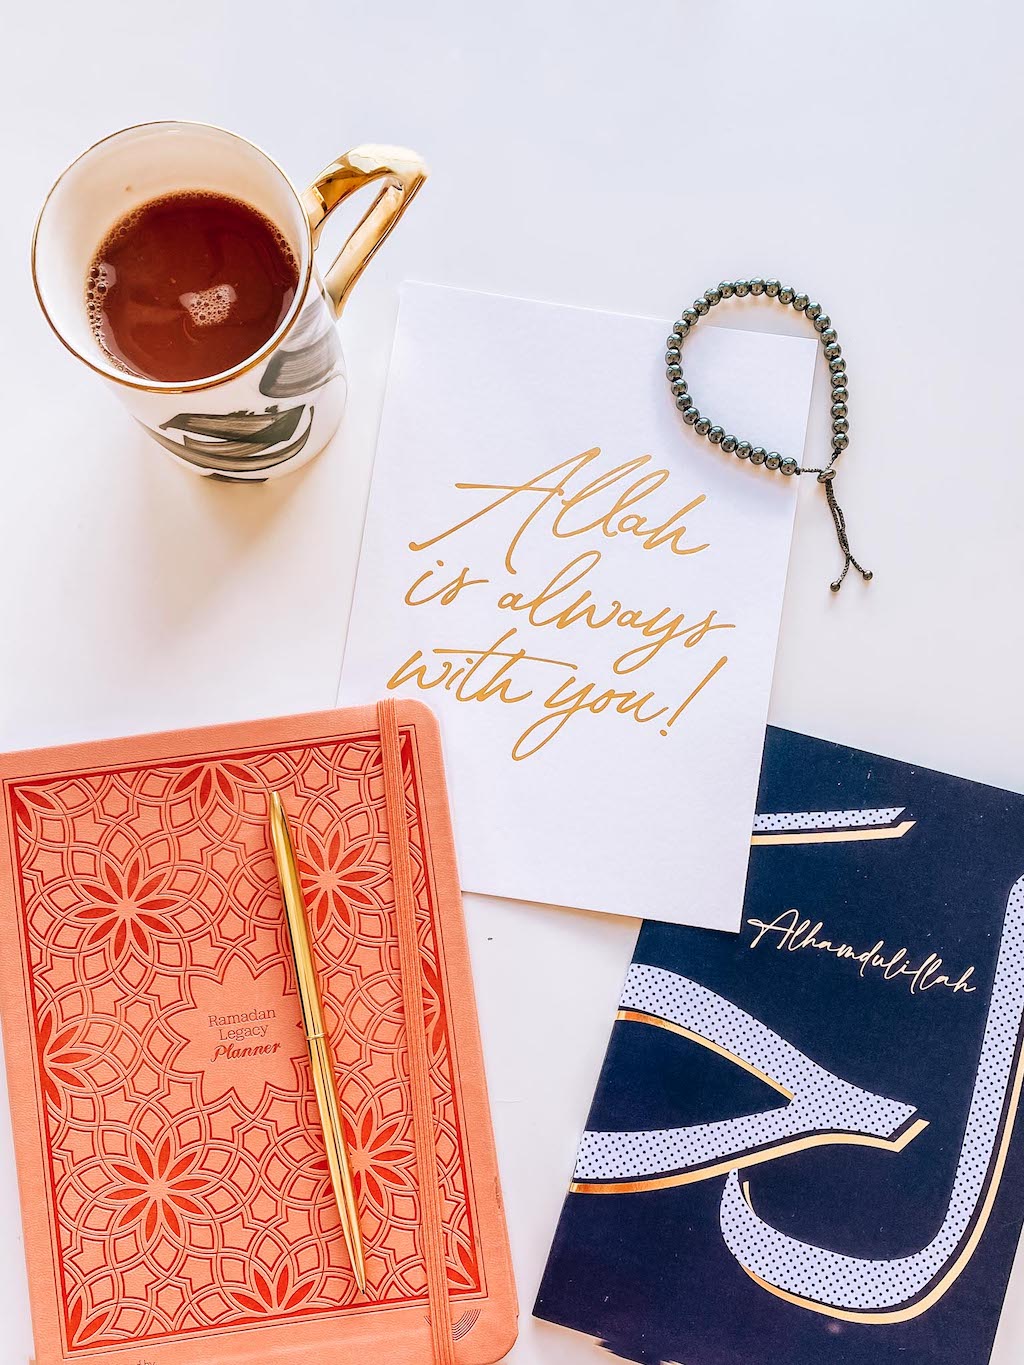 Allah
is always
with you!
Ramadan
Legacy
Planner
Alhamdulillah
by